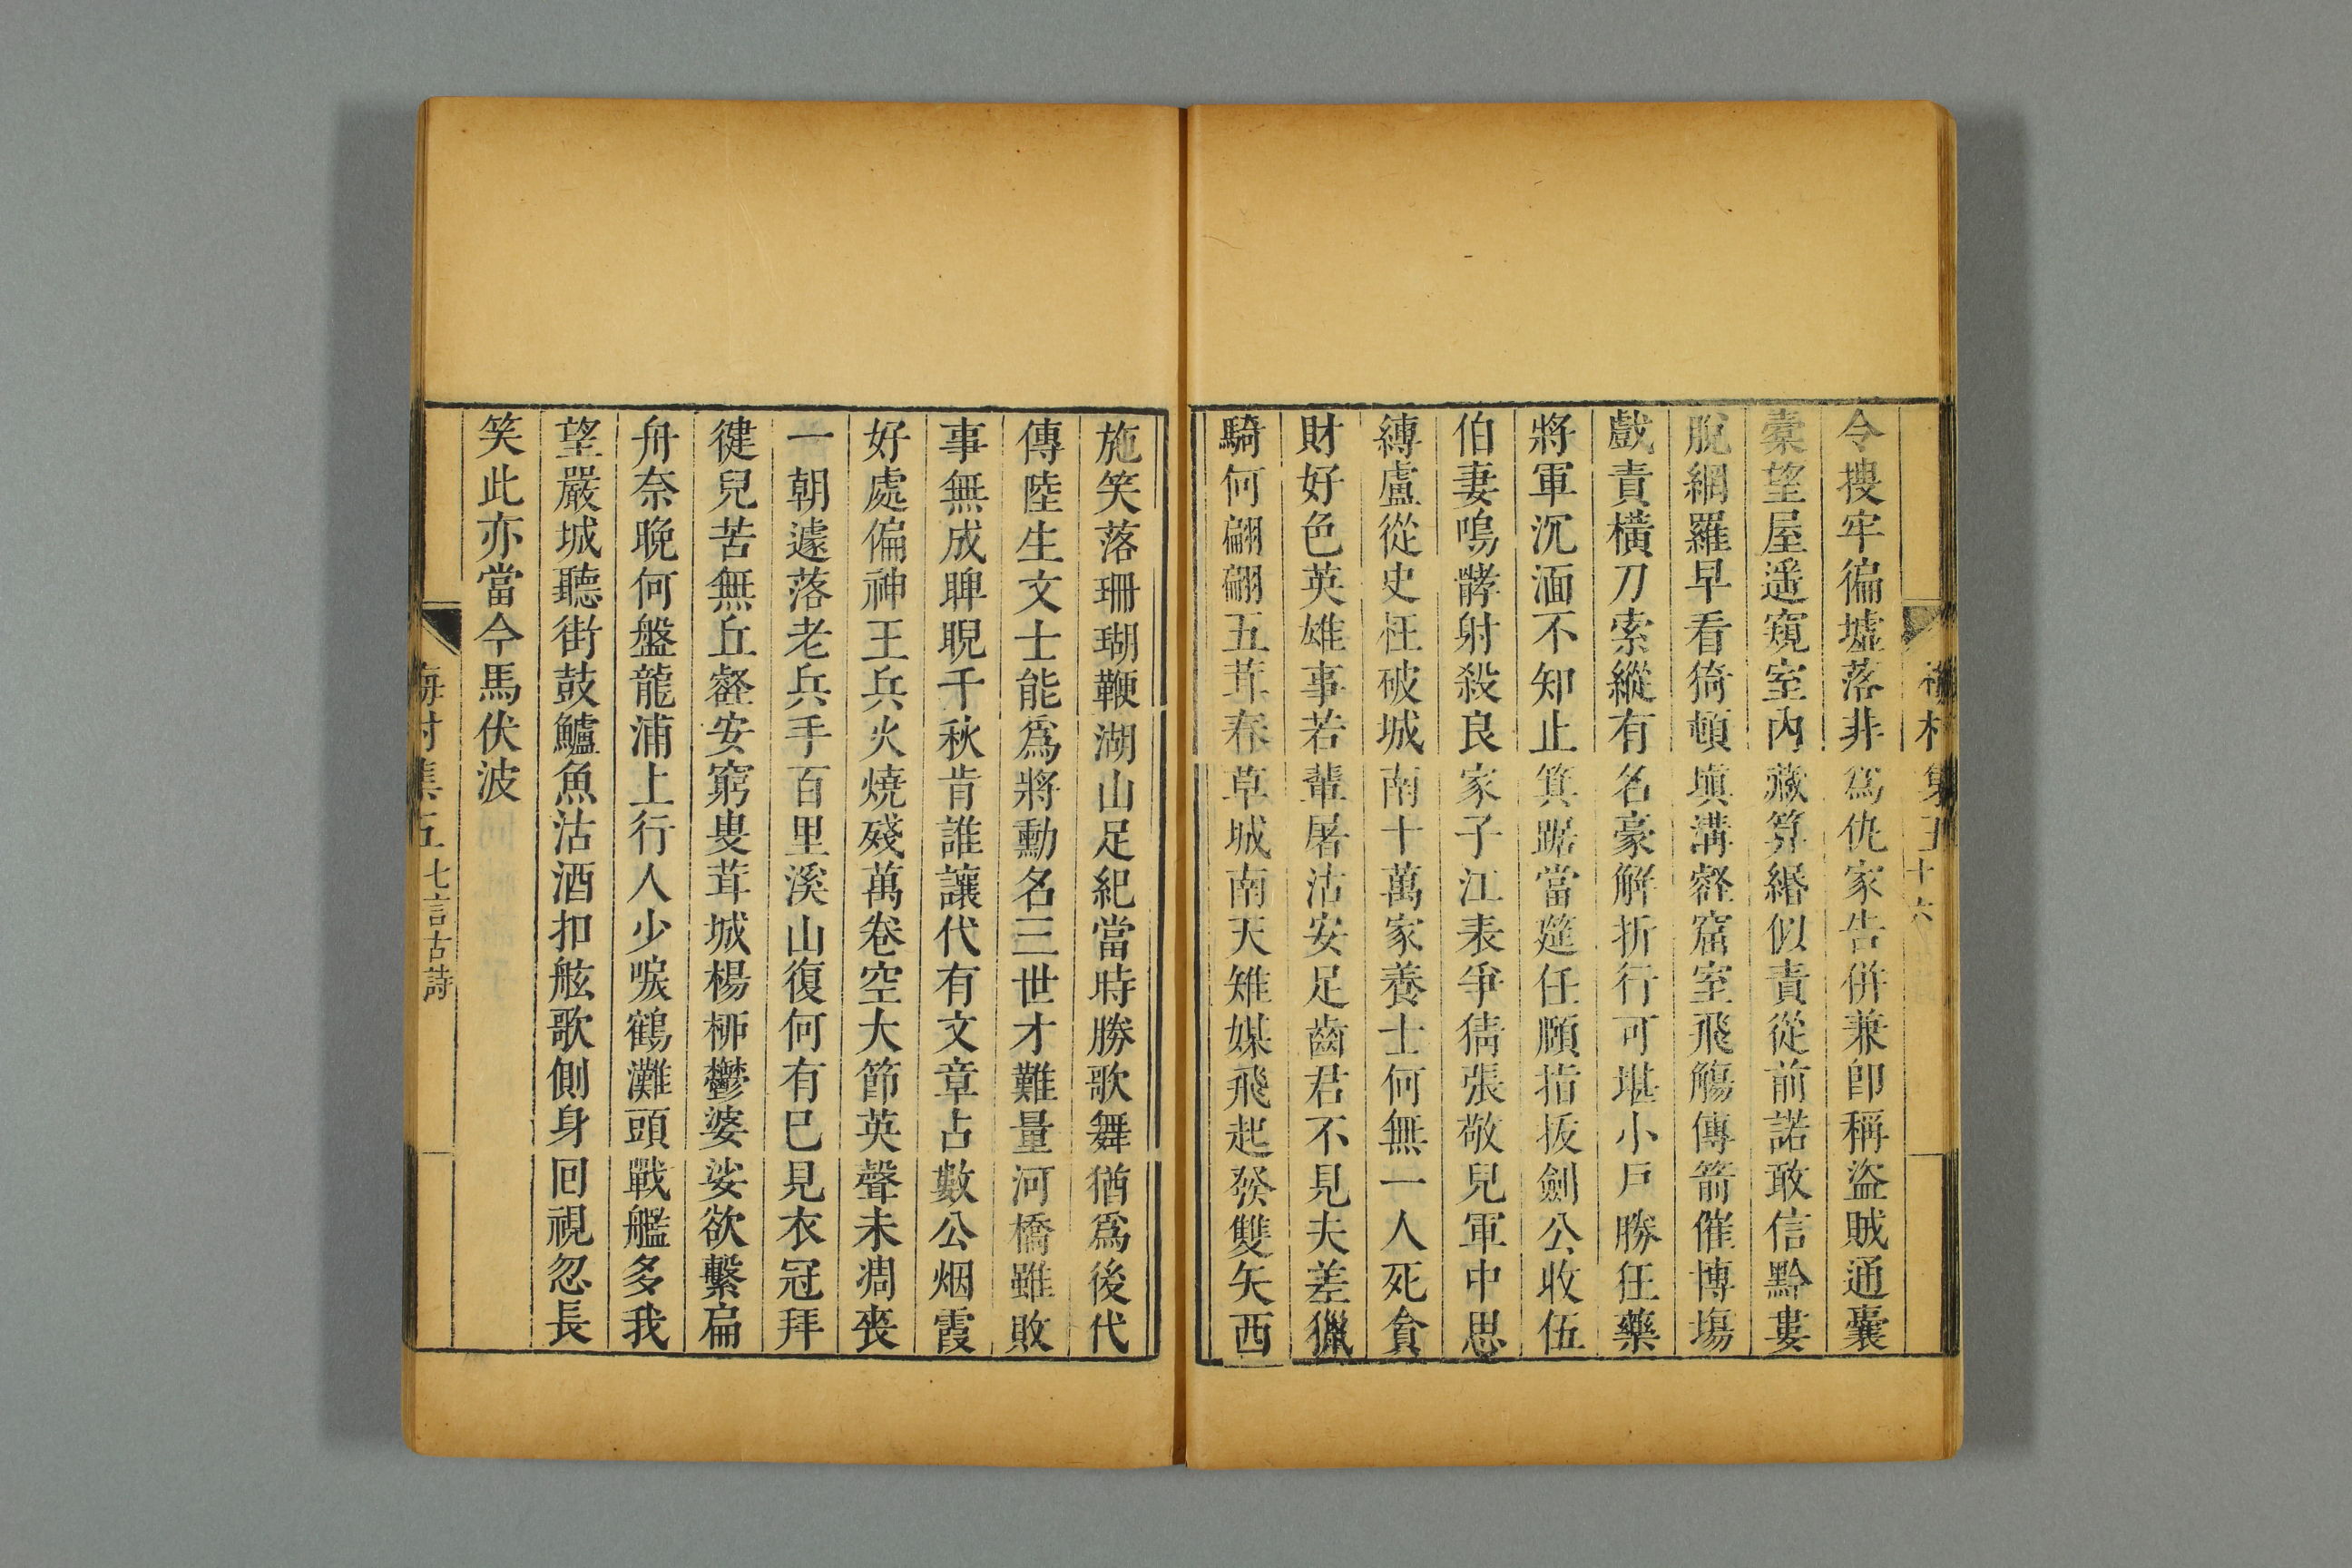 令搜牢徧墟落非為仇家告併兼卽稱盜賊通囊
橐望屋遥窺室內藏算緡似責從前諾敢信黔婁
脫網羅早看猗頓塡溝壑窟室飛觴傳箭催博塲
戲責橫刀索縱有名豪解折行可堪小戸勝狂藥
將軍沉湎不知止箕踞當筵任頤指拔劍公收伍
伯妻鳴髇射殺良家子江表爭猜張敬兒軍中思
縛盧從史枉破城南十萬家養士何無一人死貪
財好色英雄事若輩屠沽安足齒君不見夫差獵
騎何翩翩五茸春草城南天雉媒飛起發雙矢西
施笑落珊瑚鞭湖山足紀當時勝歌舞猶爲後代
傳陸生文士能爲將勳名三世才難量河橋雖敗
事無成睥睨千秋肯誰讓代有文章占數公烟霞
好處偏神王兵火燒殘萬卷空大節英聲未凋喪
一朝遽落老兵手百里溪山復何有已見衣冠拜
健兒苦無丘壑安窮叟茸城楊柳鬱婆娑欲繫扁
舟奈晚何盤龍浦上行人少唳鶴灘頭戰艦多我
望嚴城聽街鼓鱸魚沽酒扣舷歌側身回視忽長
笑此亦當今馬伏波
七言古詩